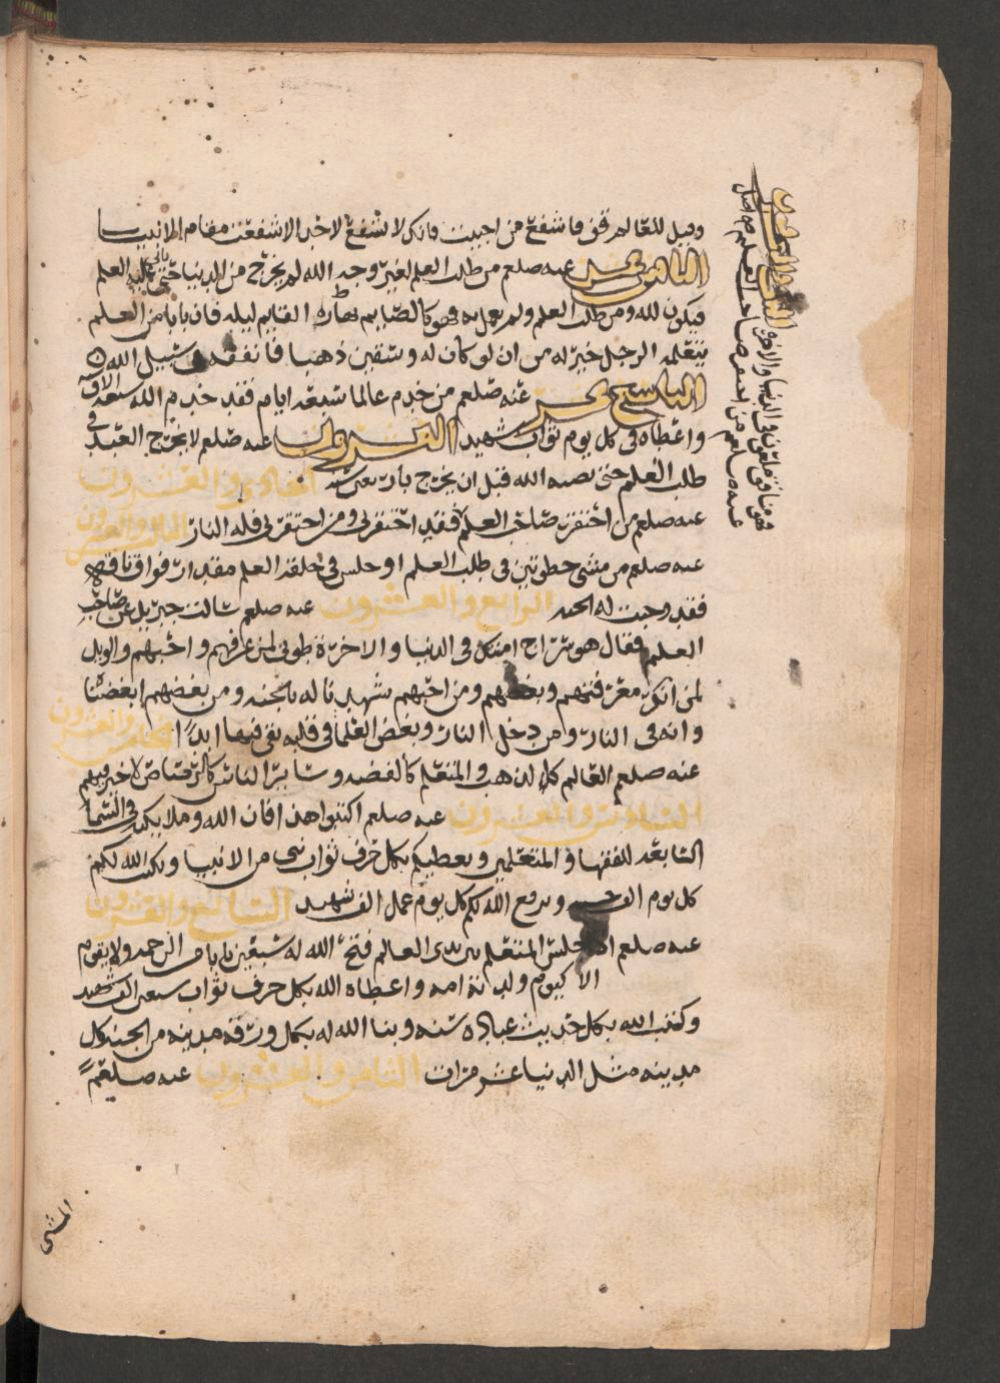 وقيل للعالم قف فاشفع من احببت فانك لا تشفع لاحد الا شفعت مقام الانبيا
الثامن عشر عنه صلعم من طلب العلم لغير وجه الله لم يخرج من الدنيا حتى ياتى عليه العلم
فيكون لله ومن طلب العلم ولم يعمل به فهو كالصايم نهاره القايم ليله فان بابا من العلم
يتعلمه الرجل خير له من ان لو كان له وسقين ذهبا فانفقه فى سبيل الله
التاسع عشر عنه صلعم من خدم عالما سبعه ايام فقد خدم الله سبعه الاف
واعطاه فى كل يوم ثواب شهيد العشرون عنه صلعم لا يخرج العبد فى
طلب العلم حتى الله قبل ان يخرج الحادى والعشرون
عنه صلعم من احتقر صاحب العلم فقد احتقرنى ومن احتقرنى فله النار الثالث والعشرون
عنه صلعم من مشى خطوتين فى طلب العلم او جلس فى حلقة العلم مقدار فواق ناقه
فقد وجبت له الجنه الرابع والعشرون عنه صلعم سالت جبريل عن صاحب
العلم فقال هو سراج امتك فى الدنيا والاخرة طوبى لمن عرفهم واحبهم والويل
لمن انكر معرفتهم وبغضهم ومن احبهم شهدنا له بالجنه ومن بغضهم ابغضنا
وانه فى النار ومن دخل النار وبغض العلما فى قلبه بقى فيها ابدًا الخامس والعشرون
عنه صلعم العالم كالذهب والمتعلم كالفضه وساير الناس كالرصاص لا خير فيهم
السادس والعشرون عنه صلعم اكتبوا هذا فان الله وملايكته فى السما
السابعه للفقها والمتعلمين ويعطيكم بكل حرف ثواب نبى من الانبيا ويكتب الله لكم
كل يوم الف ويرفع الله لكم كل يوم عمل الف شهيد السابع والعشرون
عنه صلعم اذا جلس المتعلم بين يدى العالم فتح الله له سبعين بابا من الرحمه ولا يقوم
الا كيوم ولدته امه واعطاه الله بكل حرف ثواب سبعين الف شهيد
وكتب الله بكل حديث عبادة سنه وبنا الله له بكل ورقه مدينه من الجنه كل
مدينه مثل الدنيا عشر مرات الثامن والعشرون عنه صلعم
الثانى والعشرون
عنه صلعم من ابغض صاحب العلم
فهو منافق ملعون فى الدنيا والاخره
المشى